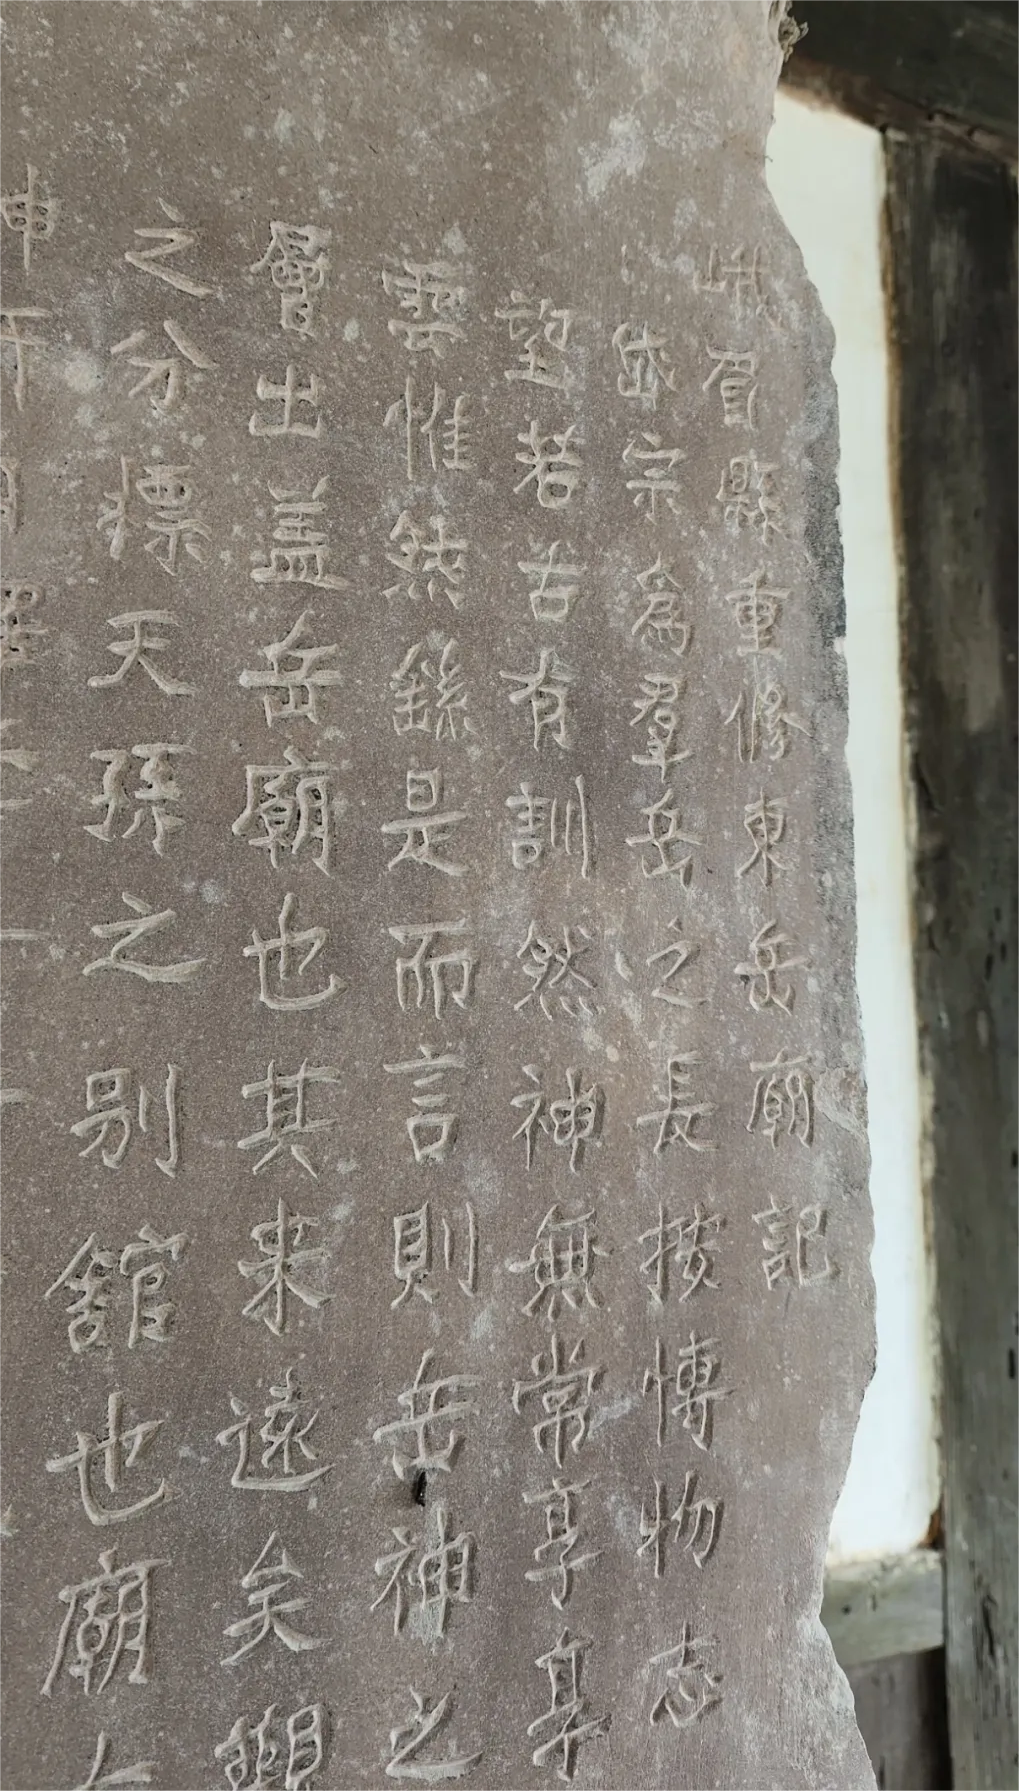 峨眉縣重修東岳廟記
岱宗爲羣岳之長按博物志
望若古有訓然神無常享享
雲惟然繇是而言則岳神之
層出盖岳廟也其来遠矣
之分標天孫之别舘也廟
神